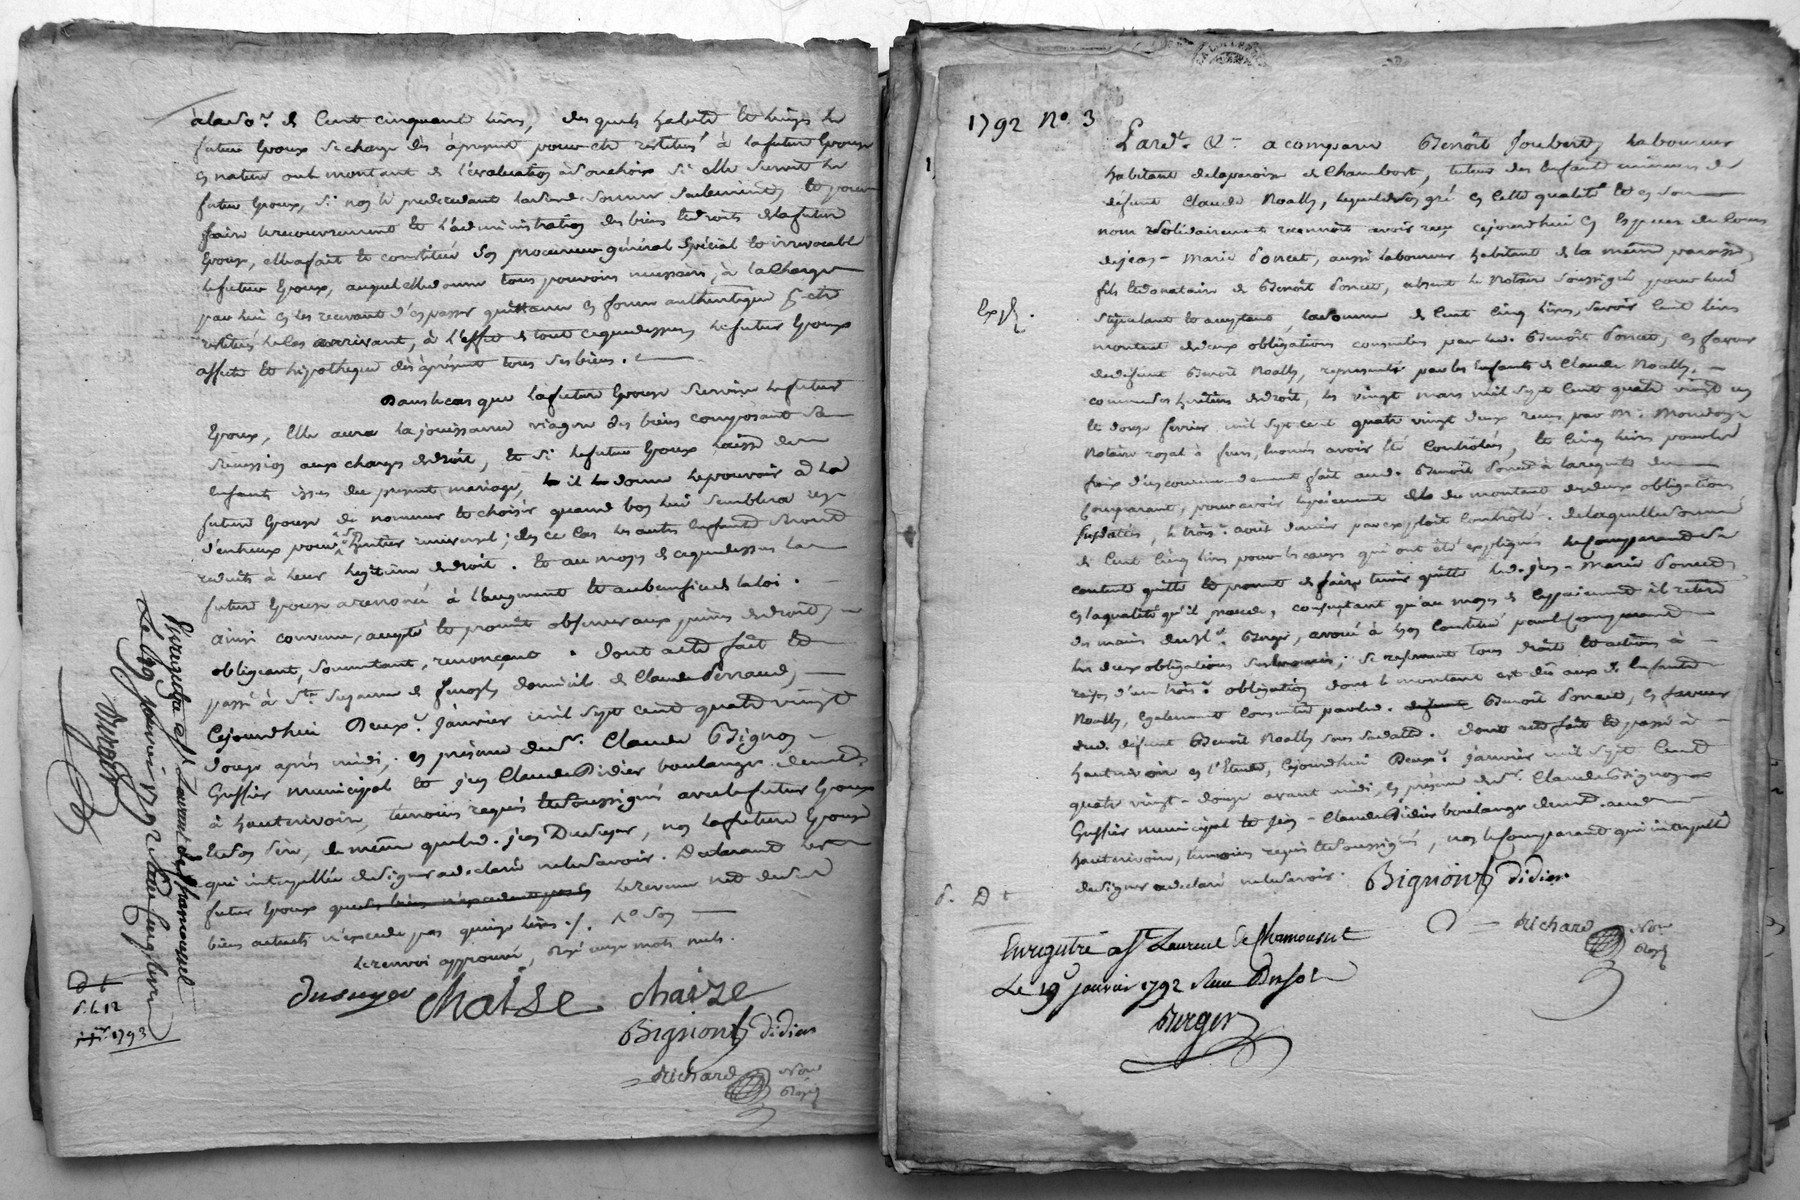 à la so.e de Cent cinquante livres, des quels habits et linges le
futur Epoux se charge dès àprésent pour etre restitué à la future Epouse
en nature ou le montant de l'évaluation à son choix si elle survit le
futur Epoux, si non le prédécédant la de. somme seulement et pour
faire le recouvrement et l'administration des biens et droits de la future
Epouse, elle a fait et constitué son procureur général spécial et irrévocable
le futur Epoux, auquel elle donne tous pouvoirs necessaires, à la Charge
par lui en les recevant d'en passer quittance en forme authentique p.r etre
restitués le cas arrivant, à l'effet de tout ce que dessus le futur Epoux
affecte et hipotheque dès àprésent tous ses biens.
Dans le cas que la future Epouse survive le futur
Epoux, Elle aura la jouissance viagere des biens composant sa
succession aux charges de droit, et si le futur Epoux laisse des
Enfants issus du présent mariage, il donne le pouvoir à la
future Epouse de nommer et choisir quand bon lui semblera un
d'entreux pour son heritier universel; dès ce cas les autres Enfants seront
reduits à leur legitime de droit. et au moyen de ce que dessus la
future Epouse a renoncé à l'augment et au benefice de la loi.
Ainsi convenu, accepté et promis observer aux peines de droit,
obligeant, soumettant, renonçant. Dont acte fait et
passé à S.te Suzanne de domicile de Claude Perraud,
Cejourdhui Deux.e Janvier mil sept cent quatre vingt
douze après midi, en présence du S.r Claude Bignon
Greffier municipal et Jean Claude Didier boulanger demt.
à hauterivoire, temoins requis et soussignés avec le futur Epoux
et son père, de même que led. Jean Dusuyer, non la future Epouse
qui interpellée de signer a declaré ne le savoir. Declarant les
futurs Epoux que les biens n'excedent pas le revenu net de ses
biens actuels n'excede pas quinze livres ./.
le renvoi approuvé, rayé onze mots nuls.
Dusuyer Chaise chaize
Bignon Didier
Richard No.re
Royal
Enregistré a St Laurent de Chamousset
Le 19 janvier 1792
Burger
1793
1792 N° 3
Pard.t &.a a comparu Benoît Joubert laboureur
habitant de la paroisse de Chambost, tuteur des Enfants mineurs de
défunt Claude Noally, lequel de son gré en cette qualité et en son
nom et solidairement reconnoit avoir reçu cejourdhui en Especes de Cours
de Jean-Marie Poncet, aussi laboureur habitant de la même paroisse
fils et donataire de Benoît Poncet, absent le Notaire soussigné pour lui
stipulant et acceptant, la somme de Cent Cinq livres, savoir Cent livres
montant de deux obligations consenties par led. Benoît Poncet, en faveur
de défunt Benoît Noally, représenté par les Enfants de Claude Noally,
comme ses heritiers de droit, les vingt mars mil sept cent quatre vingt un
et douze fevrier mil sept cent quatre vingt deux reçues par M.
Notaire royal à feurs, enoncés avoir été Contrôlées, et Cinq livres pour les
fraix d'un commandement fait aud. Benoît Poncet à la requete du
Comparant, pour avoir le paiement du montant des deux obligations
susdatées, le trois.e août dernier par exploit Contrôlé. De laquelle somme
de Cent Cinq livres pour les causes qui ont été expliquées le Comparant se
contente quitte et promet de faire tenir quitte led. Jean-Marie Poncet
en la qualité qu'il procede, consentant qu'au moyen de ce paiement il retire
des mains du S.r Burger, avoué à Constitué pour le Comparant
les deux obligations susenoncées; se reservant tous droits et actions à
raison d'une trois.e obligation dont le montant est dû aux d. Enfants
Noally, Egalement consentie par led. Benoît Poncet, en faveur
dud. défunt Benoît Noally sous sa datte. Dont acte fait et passé à
hauterivoire en l'Etude, Cejourdhui Deux.e janvier mil sept Cent
quatre vingt-douze avant midi, en présence du S.r Claude Bignon
Greffier municipal et Jean-Claude Didier boulanger demt. aud.
hauterivoire, temoins requis et soussignés, non le Comparant qui interpellé
de signer a declaré ne le savoir. Bignon Didier
Richard No.re
Royal
Exp.
Enregistré a St Laurent de Chamousset
Le 19 janvier 1792
Burger